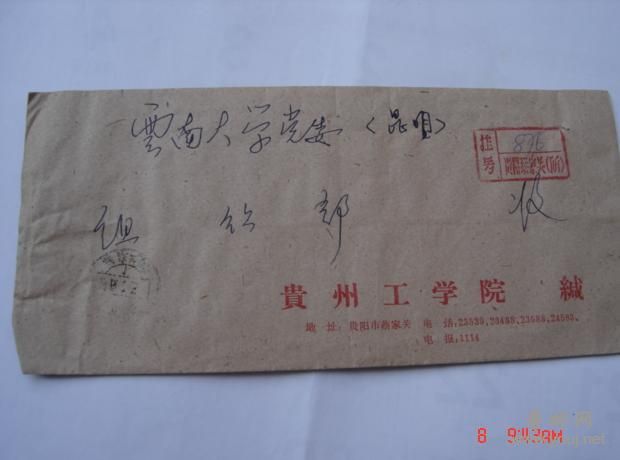 雲南大学党委（昆明）
挂号 896
组织部 收
貴州工学院 緘
地址：贵阳市蔡家关 电话:23539,23488,23588,24583.
电报,1114
8 9:43AM